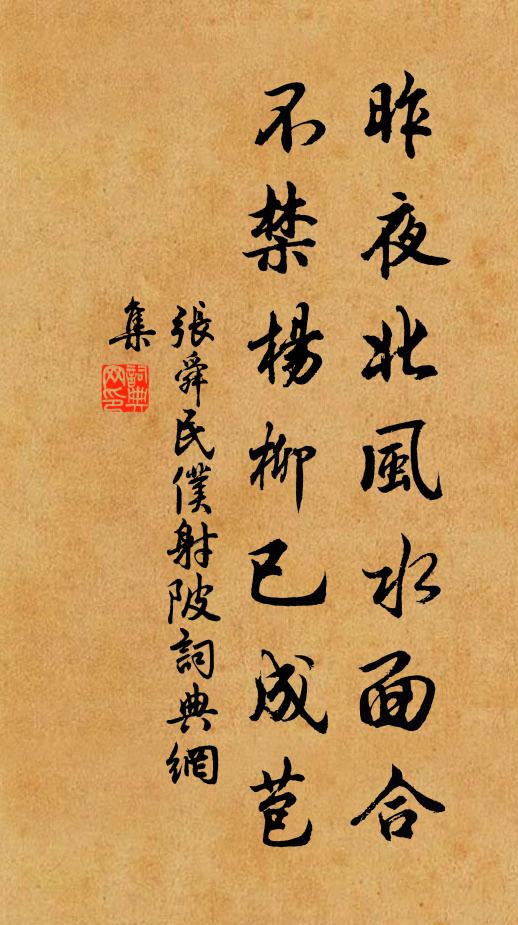 昨夜北風水面合
不禁楊柳已成苞
張舜民僕射陂詞典網
集
詞典
网印